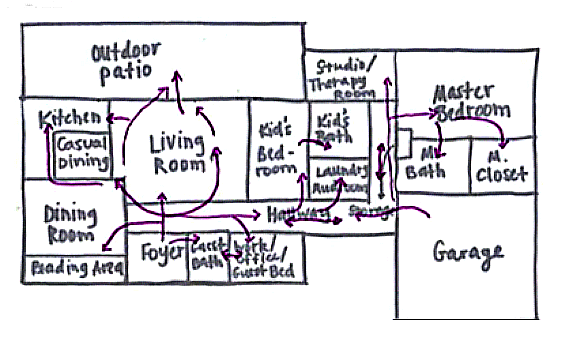 Outdoor
patio
Studio/
Therapy
Room
Master
Bedroom
Kitchen
Casual
Dining
Living
Room
Kid's
Bed-
room
Kid's
Bath
Laundry
Mudroom
M.
Bath
M.
Closet
Dining
Room
Hallway
Storage
Reading Area
Foyer
Guest
Bath
Work/
Office/
Guest Bed
Garage